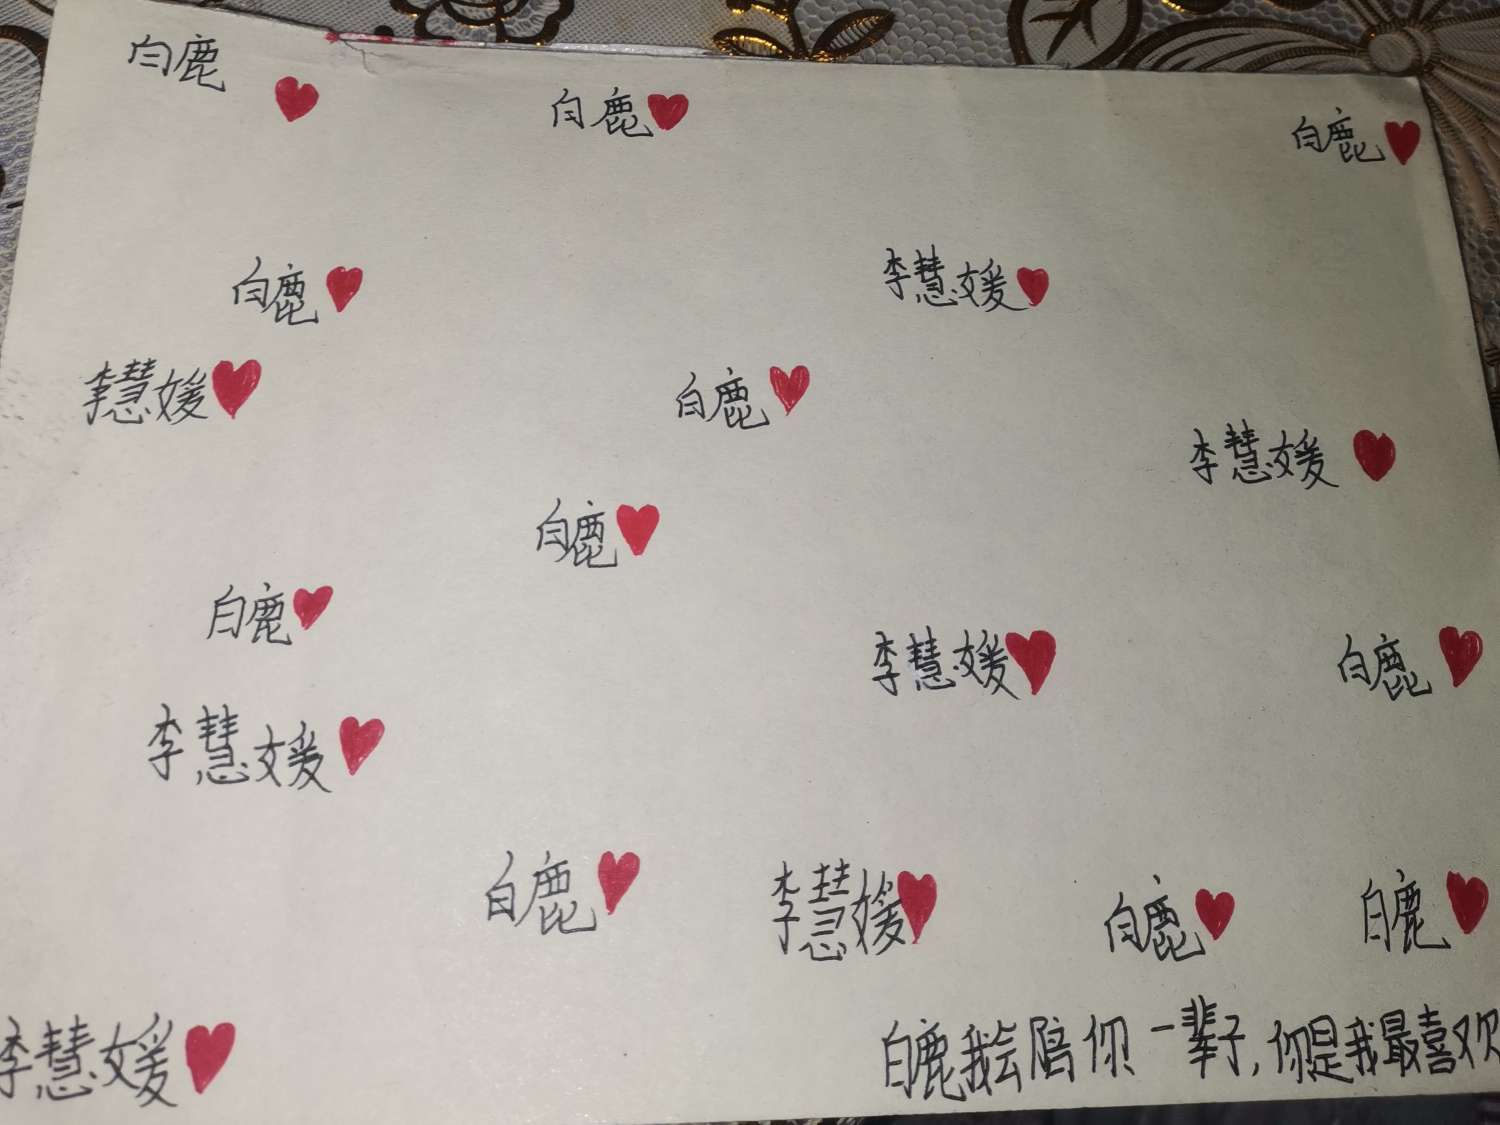 白鹿
白鹿
白鹿
白鹿
李慧媛
李慧媛
白鹿
李慧媛
白鹿
白鹿
李慧媛
白鹿
李慧媛
白鹿
李慧媛
白鹿
白鹿
李慧媛
白鹿我会陪你一辈子,你是我最喜欢